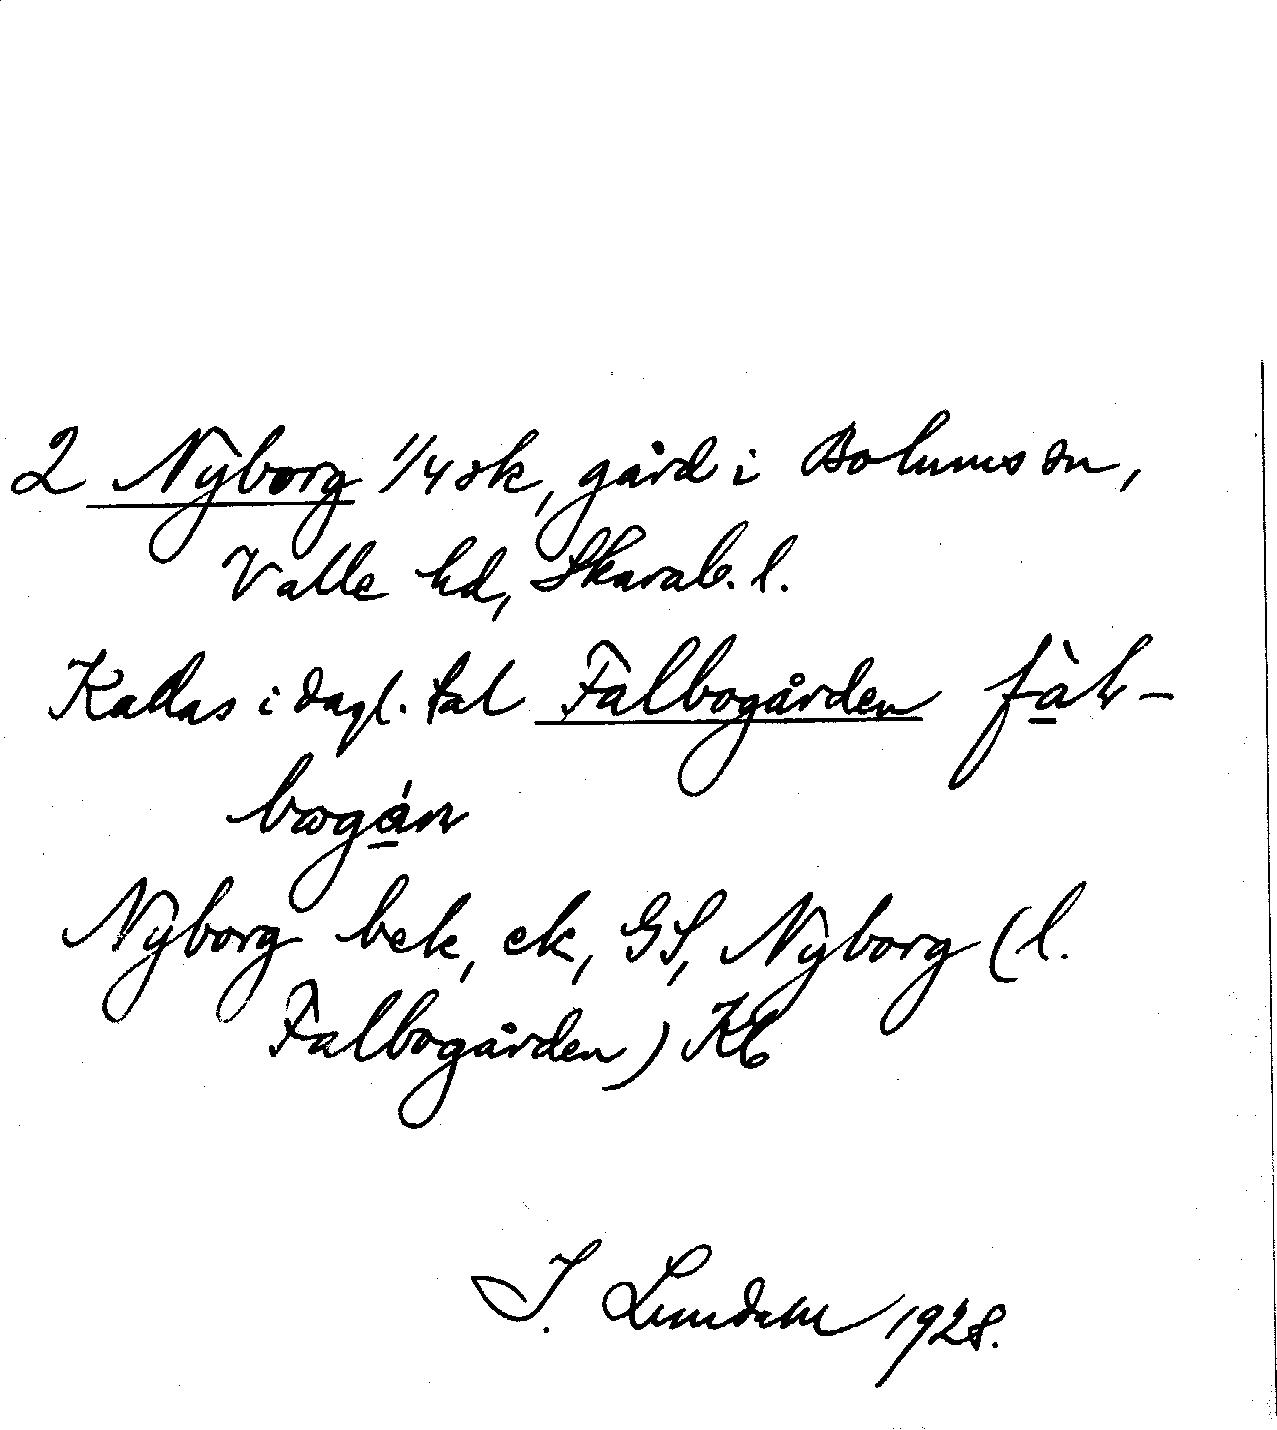 2 Nyborg 1/4 sk, gård i Bolums sn,
Valle hd, Skarab. l.
Kallas i dagl. tal Falbogården fàl-
bogán
Nyborg bek, ek, GS, Nyborg (l.
Falbogården) Kb
I. Lundahl 1928.